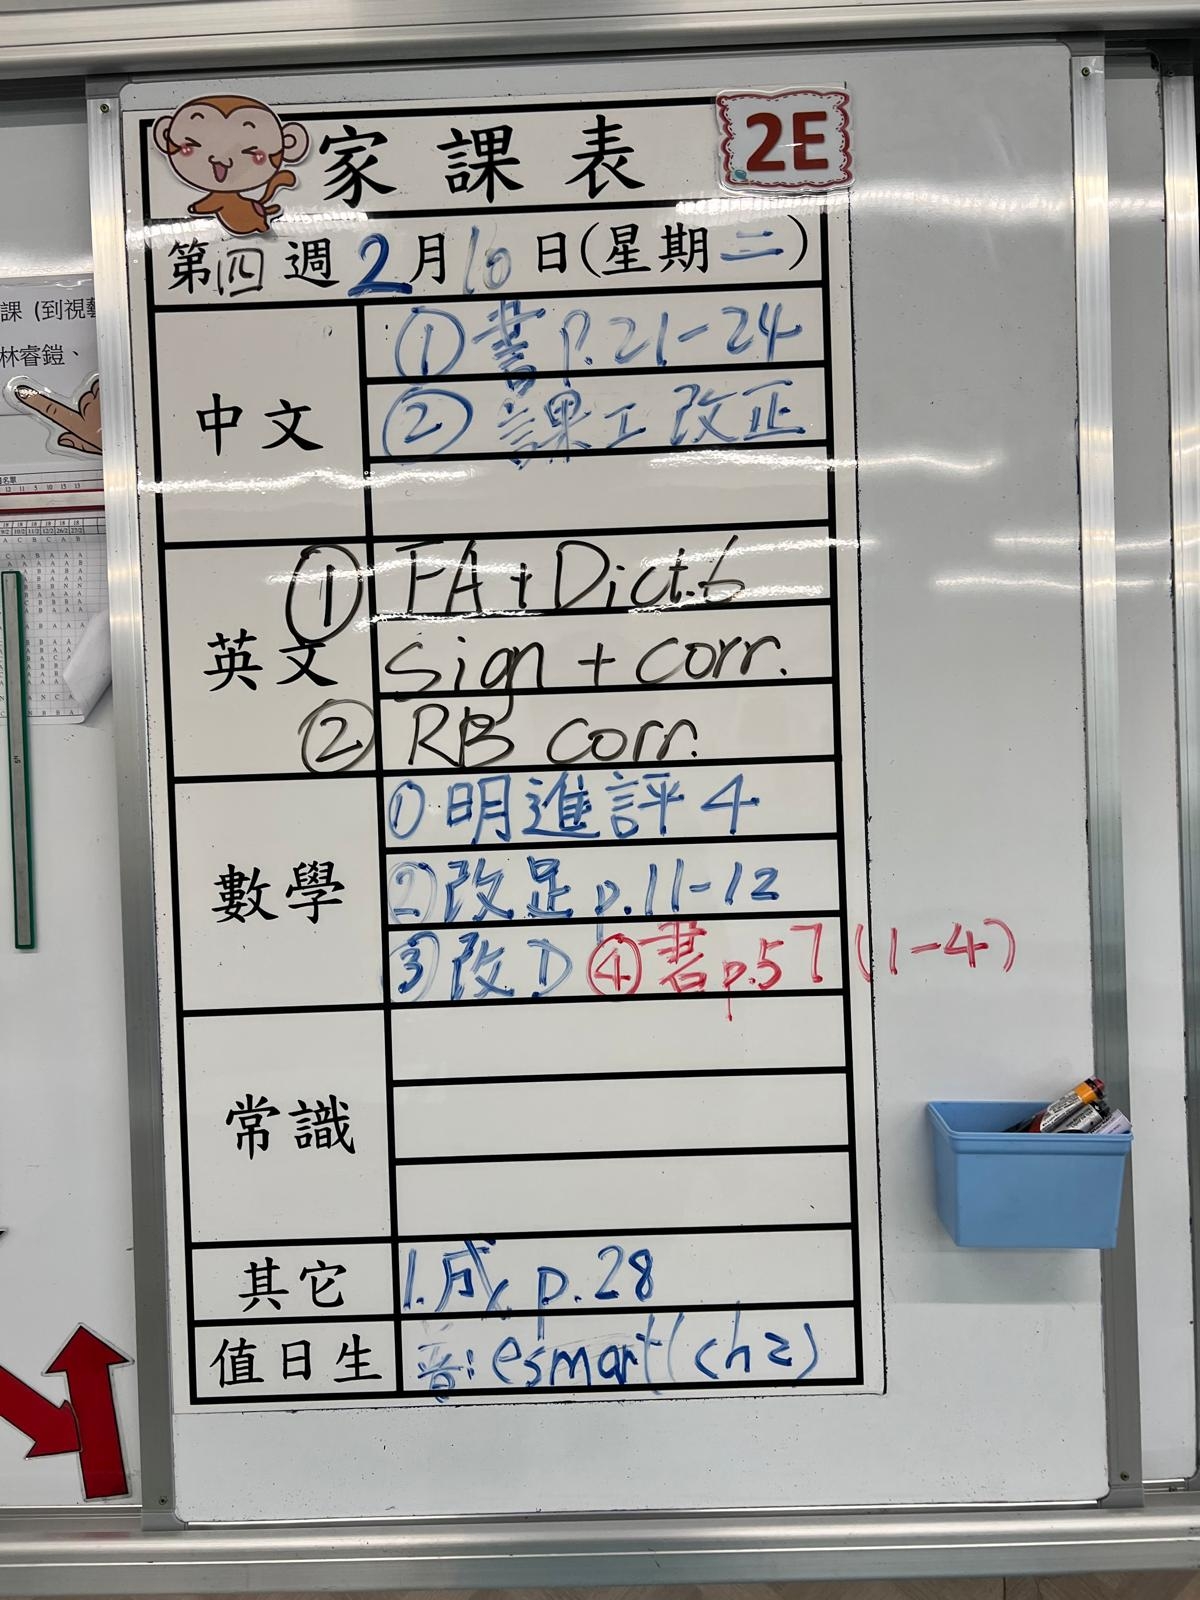 家課表
2E
第四週2月10日(星期二)
中文
①書p.21-24
②課工改正
英文
① FA + Dict.6
sign + corr.
② RB corr.
數學
①明進評4
②改足p.11-12
③改D ④書p.57(1-4)
常識
其它
1.成 p.28
值日生
音: esmart(ch2)
課 (到視藝
林睿鎧、